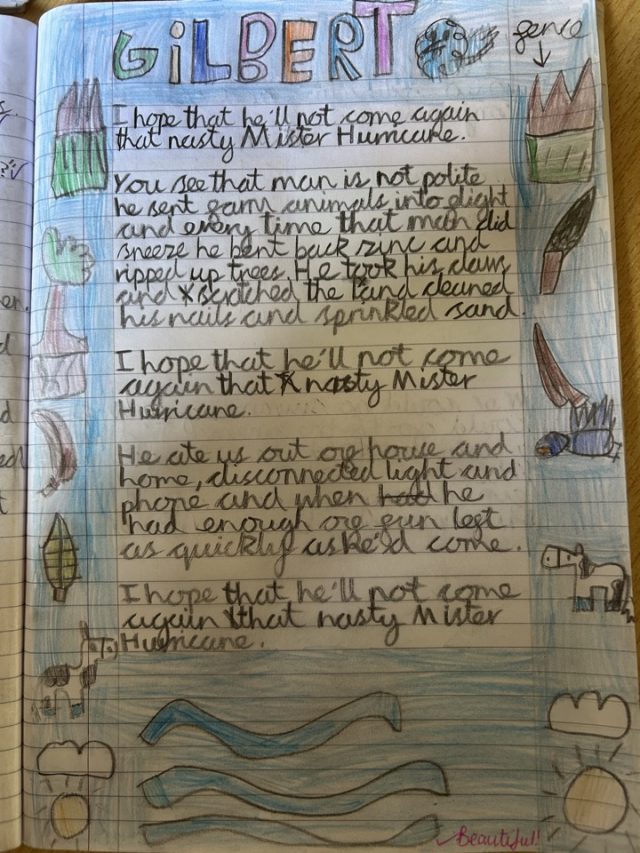 GILBERT
gence
I hope that he'll not come again
that nasty Mister Hurricane.
You see that man is not polite
he sent garm animals into glight
and every time that man did
sneeze he bent back zinc and
ripped up trees. He took his claws
and scratched the land cleaned
his nails and sprinkled sand.
I hope that he'll not come
again that nasty Mister
Hurricane.
He ate us out og house and
home, disconnected light and
phone and when had he
had enough og gun legt
as quickly as he'd come.
I hope that he'll not come
again that nasty Mister
Hurricane.
Beautiful!